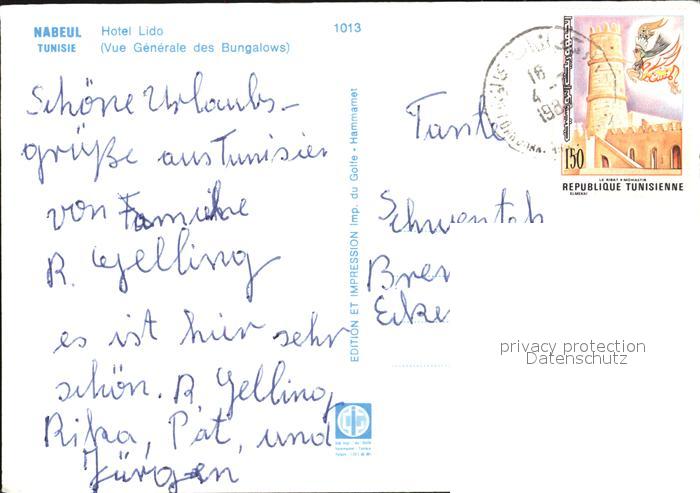 NABEUL Hotel Lido
TUNISIE (Vue Générale des Bungalows)
1013
Schöne Urlaubs-
grüße aus Tunisien
von Familie
R. Gelling
es ist hier sehr
schön. R. Gelling,
Rika, Pat, und
Jürgen
EDITION ET IMPRESSION Imp. du Golfe - Hammamet
Tante
16
4
LE RIBAT • MONASTIR
150
REPUBLIQUE TUNISIENNE
ELMEKKI
privacy protection
Datenschutz